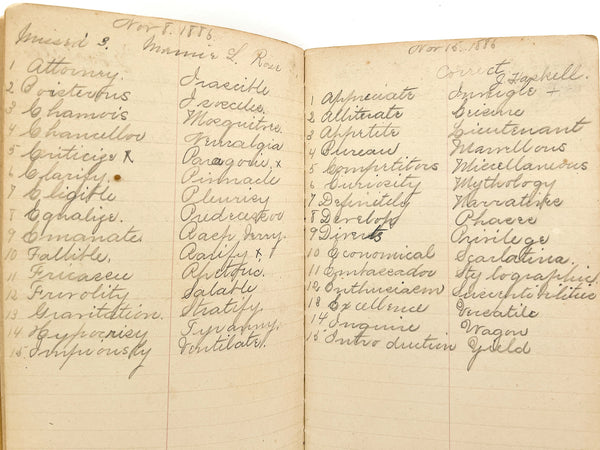 Nov 8, 1886
Missed 3. Mamie L. Rose
1 Attorney. Irascible
2 Boisterous Isosceles.
3 Chamois Mosquitoe.
4 Chancellor Neuralgia
5 Criticise x Paragorie. x
6 Clarify. Pinnacle
7 Eligible Pleurisy
8 Equalize. Predecessor
9 Emanate.
10 Fallible. x
11 Fricassee
12 Frivolity Salable
13 Gravitation. Stratify.
14 Hypocrisy Tyranny.
15 Impiously Ventilate.
Nov 15, 1886
Correct
J Haskell.
1 Appreciate Inveigle +
2 Alliterate Leisure
3 Appetite Lieutenant
4 Bureau Marvellous
5 Competitors Miscellaneous
6 Curiosity Mythology
7 Definitely Narrative
8 Develop Phases
9 Diverts Privilege
10 Economical Scarlatina.
11 Embassador Stylographic
12 Enthusiasm Susceptibilities
13 Excellence Versatile
14 Inquire Wagon
15 Introduction Yield